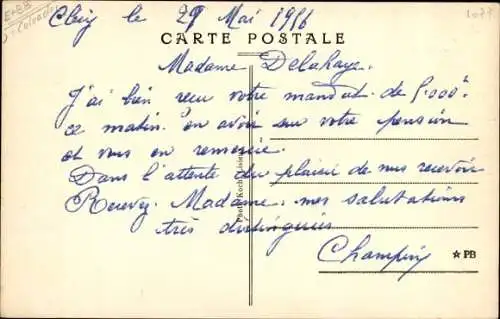 le 29 Mai 1956
CARTE POSTALE
Madame Delahaye.
J'ai bien reçu votre mandat de 5.000
ce matin. en avoir sur votre pension
et vous en remercie.
Dans l'attente du plaisir de nous recevoir
Recevez. Madame. mes salutations
très distinguées
★ PB
Calvados